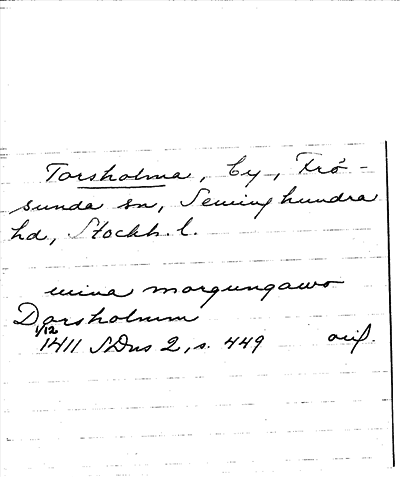 Torsholma, by, Frö-
sunda sn, Seminghundra
hd, Stockh. l.
mina morgungawo
Dorsholmum
1/12
1411 SDns 2, s. 449 orig.